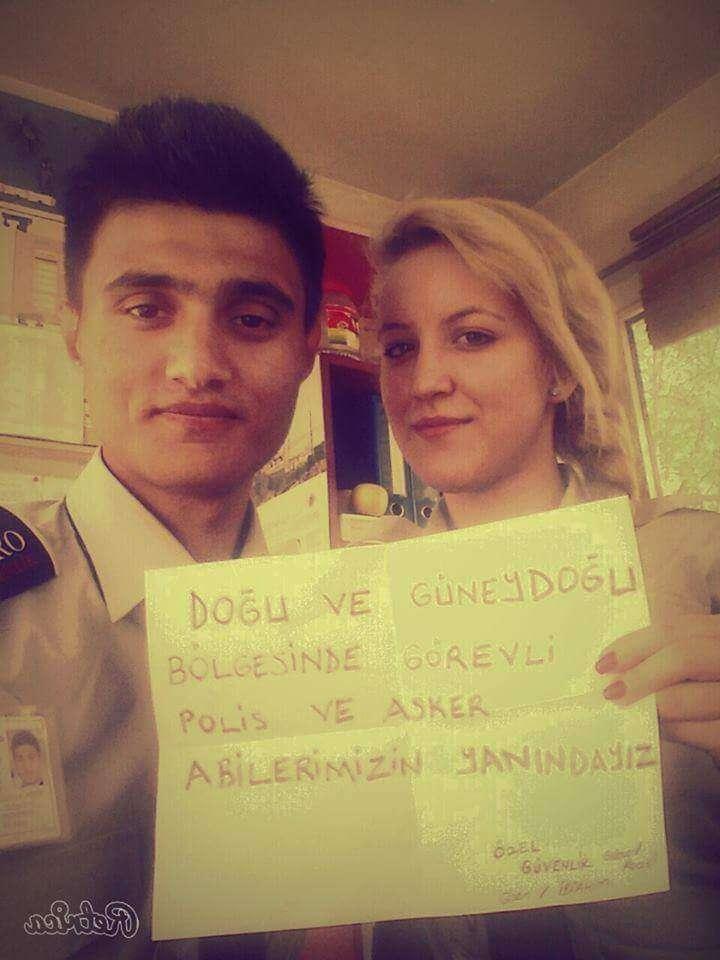 DOĞU VE GÜNEYDOĞU
BÖLGESİNDE GÖREVLİ
POLİS VE ASKER
ABİLERİMİZİN YANINDAYIZ
ÖZEL
GÜVENLİK
RO
Retrica